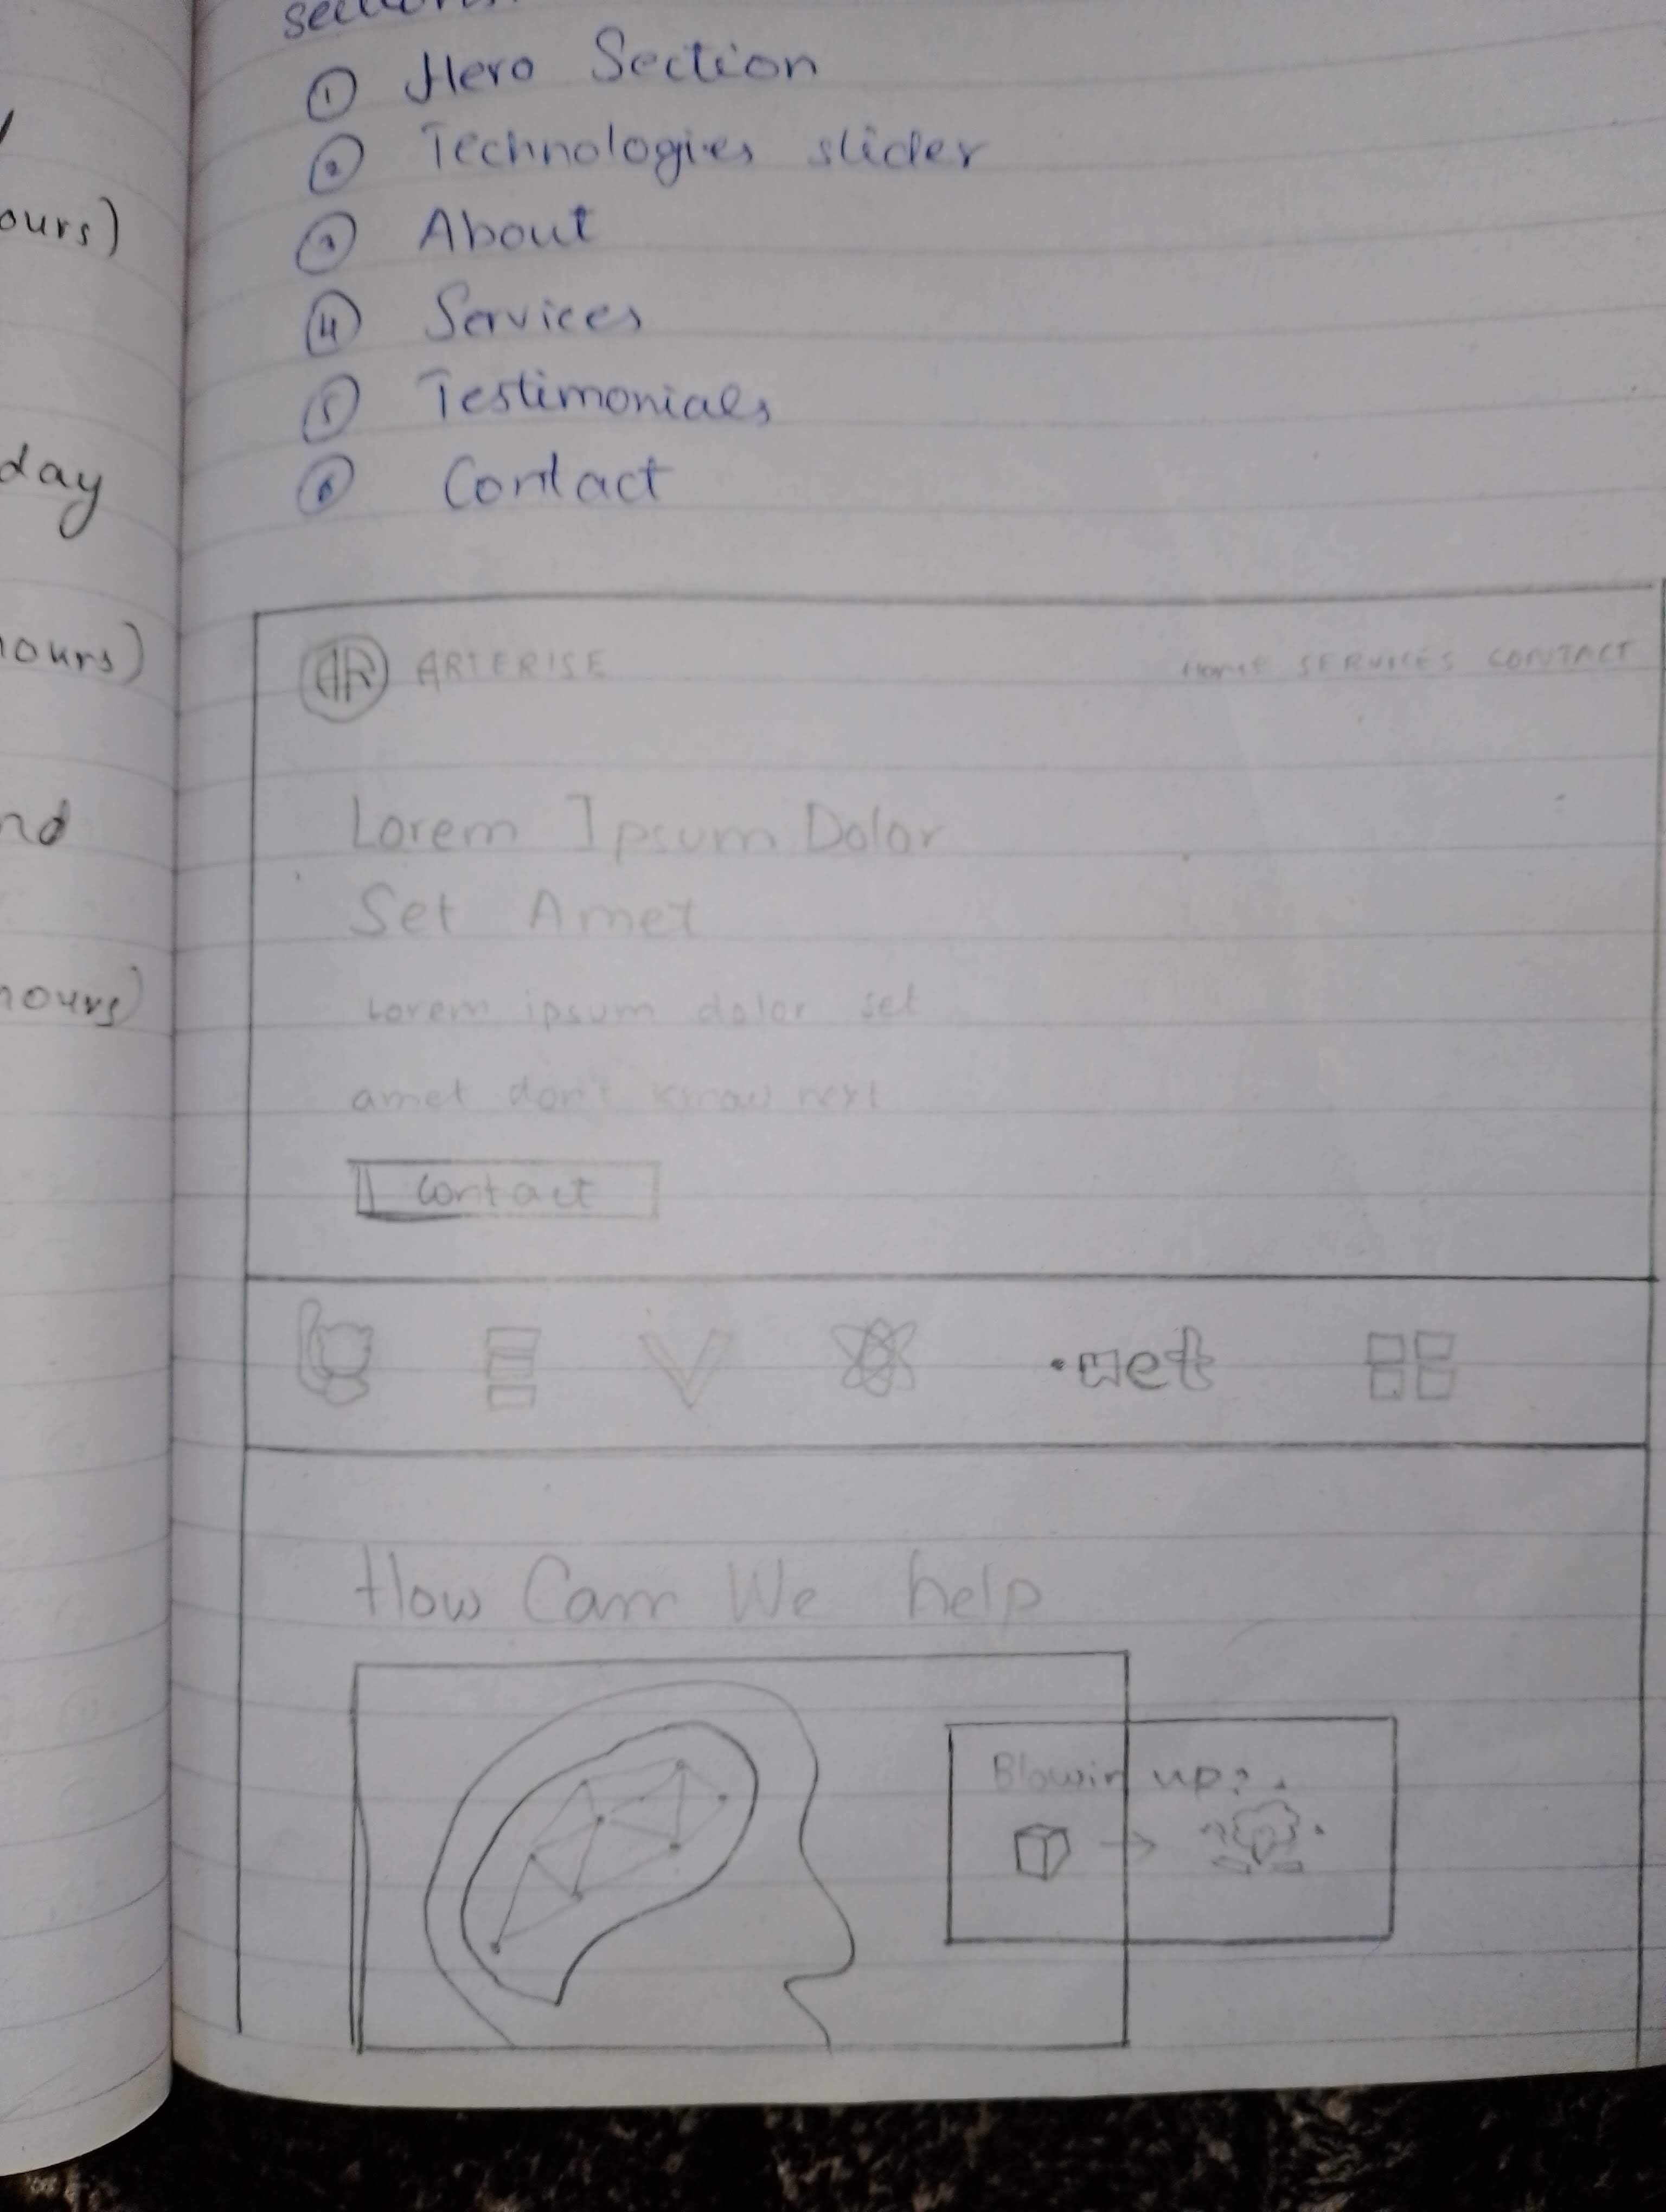 ours)
day
hours)
nd
hours)
sections
① Hero Section
② Technologies slider
③ About
④ Services
⑤ Testimonials
⑥ Contact
AR ARTERISE
Home SERVICES CONTACT
Lorem Ipsum Dolor
Set Amet
Lorem ipsum dolor set
amet don't know next
Contact
.net
How Can We help
Blowin up?